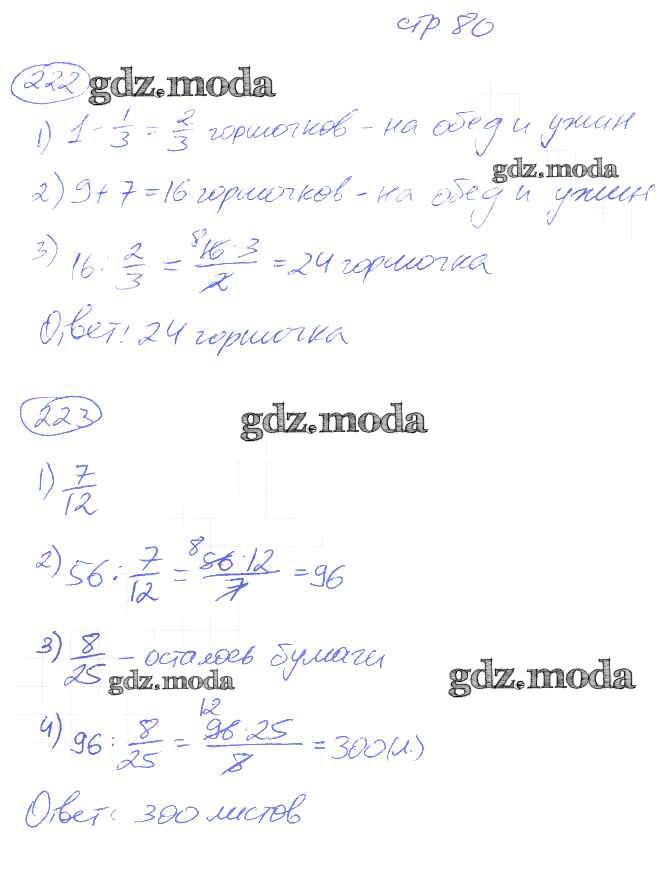 стр 80
222 gdz.moda
1) 1 - 1/3 = 2/3 горшочков - на обед и ужин
gdz.moda
2) 9 + 7 = 16 горшочков - на обед и ужин
3) 16 : 2/3 = 16 · 3 / 2 = 24 горшочка
8
Ответ: 24 горшочка
223 gdz.moda
1) 7/12
2) 56 : 7/12 = 56 · 12 / 7 = 96
8
3) 8/25 - осталось бумаги
gdz.moda gdz.moda
4) 96 : 8/25 = 96 · 25 / 8 = 300 (л.)
12
Ответ: 300 листов